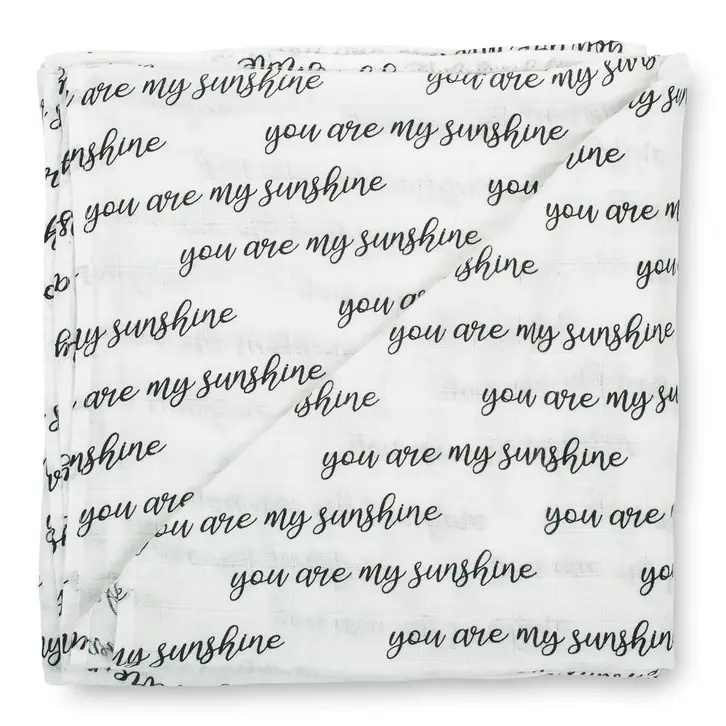 are my sunshine you are my sunshine
you are my sunshine
nshine
you are my sunshine you
you are my
you are my sunshine
shine you
my sunshine you a
you are my sunshine
are my sunshine
shine you are my su
nshine
you are my sunshine
you are
ou are my sunshine you are
you are my sunshine yo
my sunshine you are my sunshin